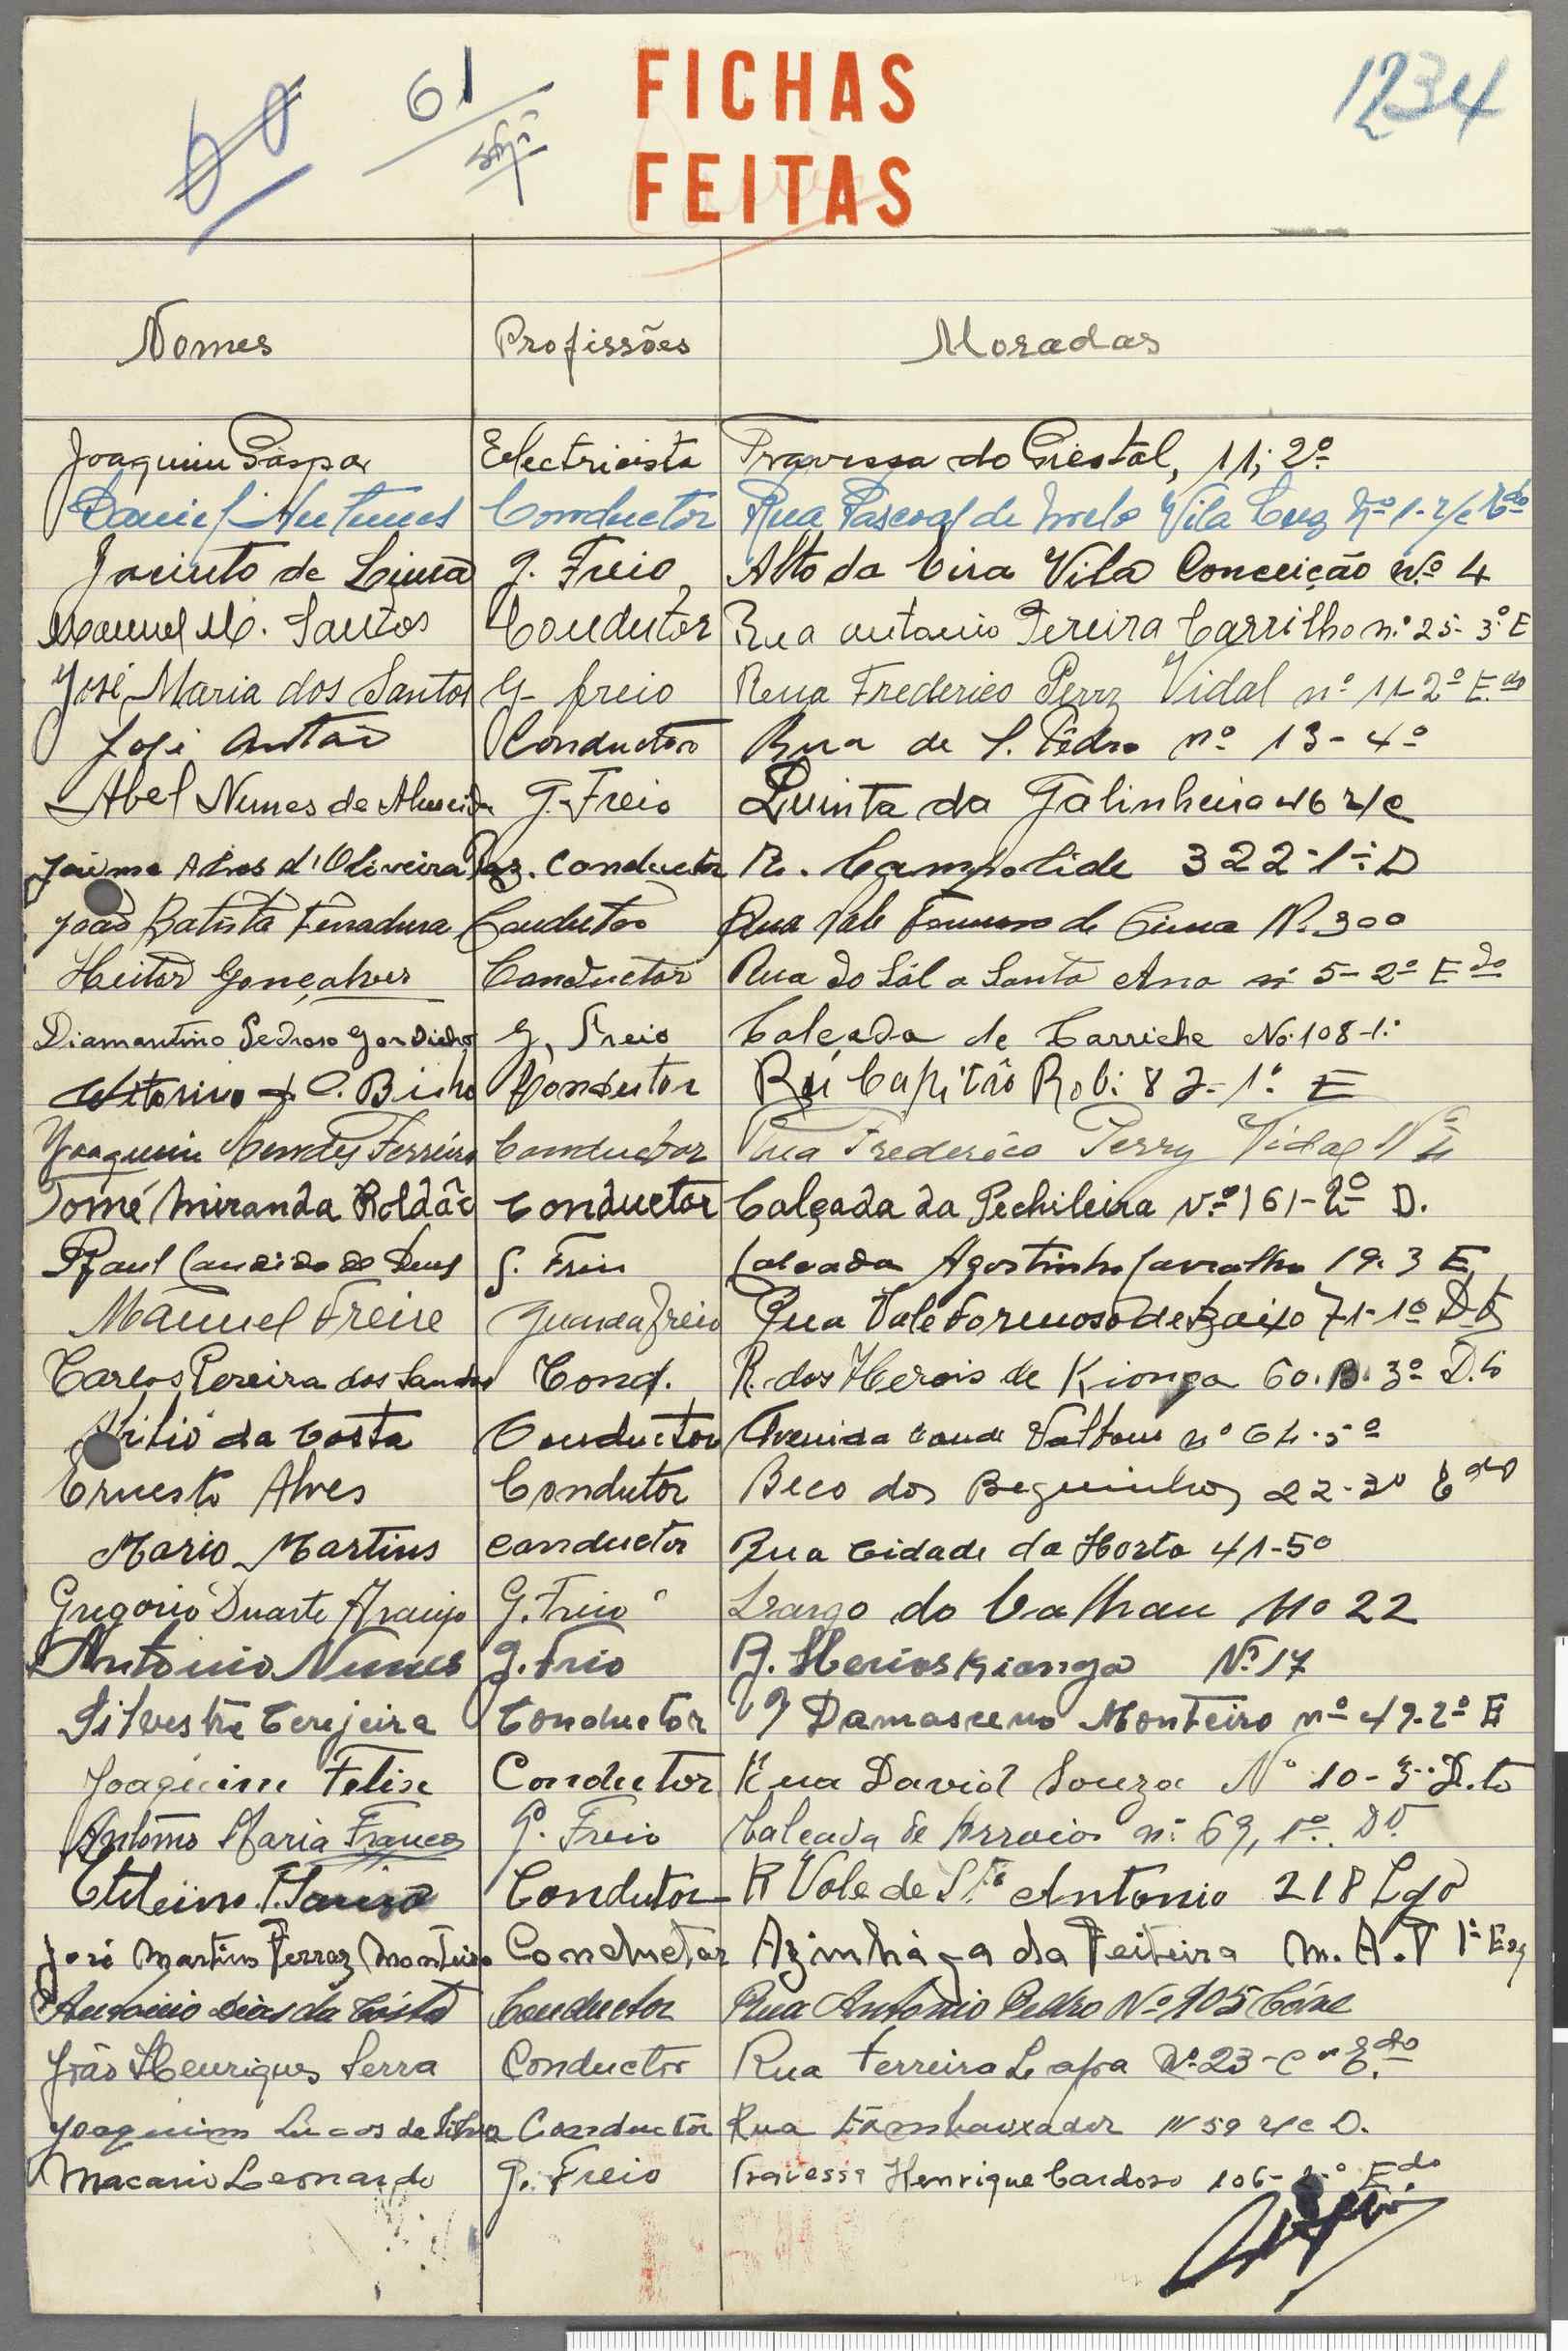 61
FICHAS
FEITAS
1234
Nomes Profissões Moradas
Joaquim Gaspar Electricista Travessa do Giestal, 11, 2º
Daniel Antunes Conductor Rua Pascoal de Melo Vila Luz Nº 1-r/c
Jacinto de Lima g. Freio Alto da Eira Vila Conceição Nº 4
Manuel M. Santos Condutor Rua antonio Pereira Carrilho nº 25-3º E
José Maria dos Santos G- freio Rua Frederico Perry Vidal nº 11-2º E.do
José Antão Conductor Rua de S. Pedro nº 13-4º
Abel Nunes de Almeida g. Freio Quinta da Galinheira 46 r/c
Jaime Alves d'Oliveira Paz. Conductor R. Campolide 322-1º D
João Batista Ferradura Condutor Rua Vale Formoso de Cima Nº 300
Heitor Gonçalves Conductor Rua do Sól a Santa Ana nº 5-2º Edo
Diamantino Pedroso Gordicho g, Freio Calçada de Carriche Nº 108-1º
Condutor Capitão Robi 82-1º E
Joaquim Mendes Ferreira Conductor Rua Frederico Perry Vidal Nº 4
Tomé Miranda Roldão Conductor Calçada da Pechileira Nº 161-2º D.
Raul Candido de Deus g. Freio Calçada Agostinho Carvalho 19. 3 E
Manuel Freire guarda freio Rua Vale Formoso de Baixo 71-1º Dto
Carlos Pereira dos Santos Cond. R. dos Herois de Kionga 60. B. 3º D.to
da Costa Conductor Avenida Conde Valbom nº 64-5º
Ernesto Alves Condutor Beco dos Beguinhos 22-3º Edo
Mario Martins conductor Rua Cidade da Horta 41-5º
Gregorio Duarte Araujo G. Freio Largo do Calhau Nº 22
Antonio Nunes g. Frio R. Herios Kionga Nº 17
Silvestre Cerejeira Conductor Damasceno Monteiro nº 49-2º E
Joaquim Felix Conductor Rua David Souza Nº 10-3º D.to
Antonio Maria Franco G. Freio Calçada de Arroios nº 69, 1º. Dto
Condutor R Vale de Sto Antonio 218 Lgo
José Martins Ferraz Monteiro Conductor Azinhaga da Feiteira M. A. T 1º Esq
Antonio Dias da Costa Conductor Rua Antonio Pedro Nº 105
João Henriques Serra Conductor Rua Ferreira Lapa Nº 23
Joaquim Lucas da Silva Conductor Rua Embaixador Nº 59 r/c D.
Macario Leonardo G. Freio Travessa Henrique Cardoso 106- Edo